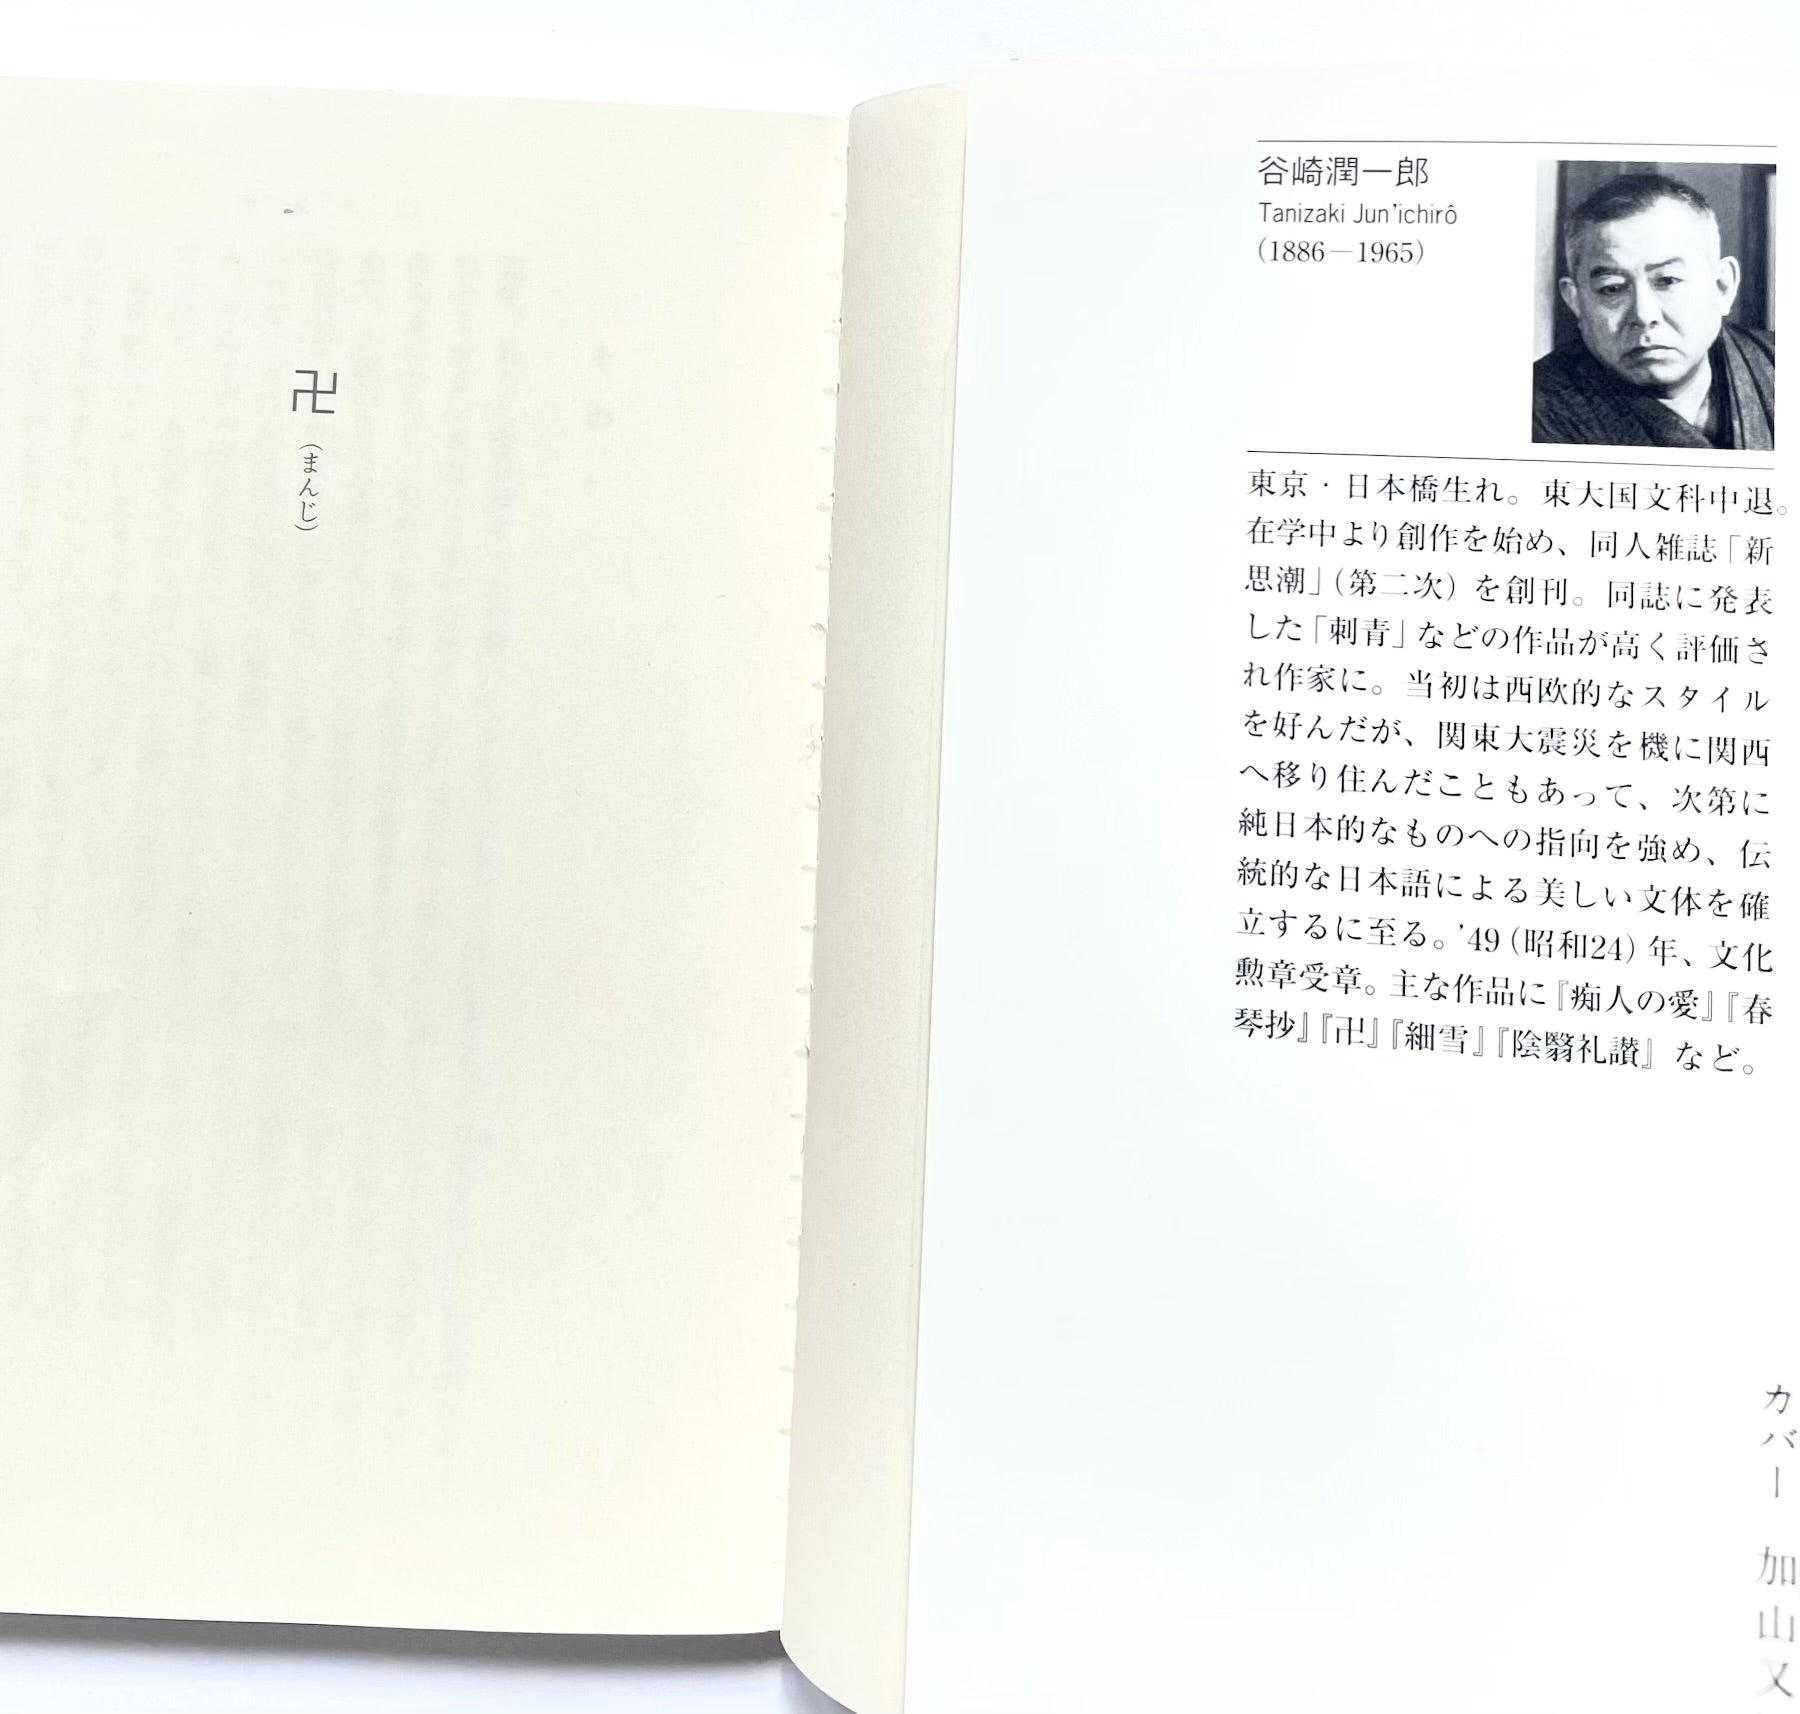 谷崎潤一郎
Tanizaki Jun'ichirô
(1886－1965)
東京・日本橋生れ。東大国文科中退。
在学中より創作を始め、同人雑誌「新
思潮」(第二次) を創刊。同誌に発表
した「刺青」などの作品が高く評価さ
れ作家に。当初は西欧的なスタイル
を好んだが、関東大震災を機に関西
へ移り住んだこともあって、次第に
純日本的なものへの指向を強め、伝
統的な日本語による美しい文体を確
立するに至る。'49 (昭和24) 年、文化
勲章受章。主な作品に『痴人の愛』『春
琴抄』『卍』『細雪』『陰翳礼讃』など。
カバー 加山又
卍
(まんじ)